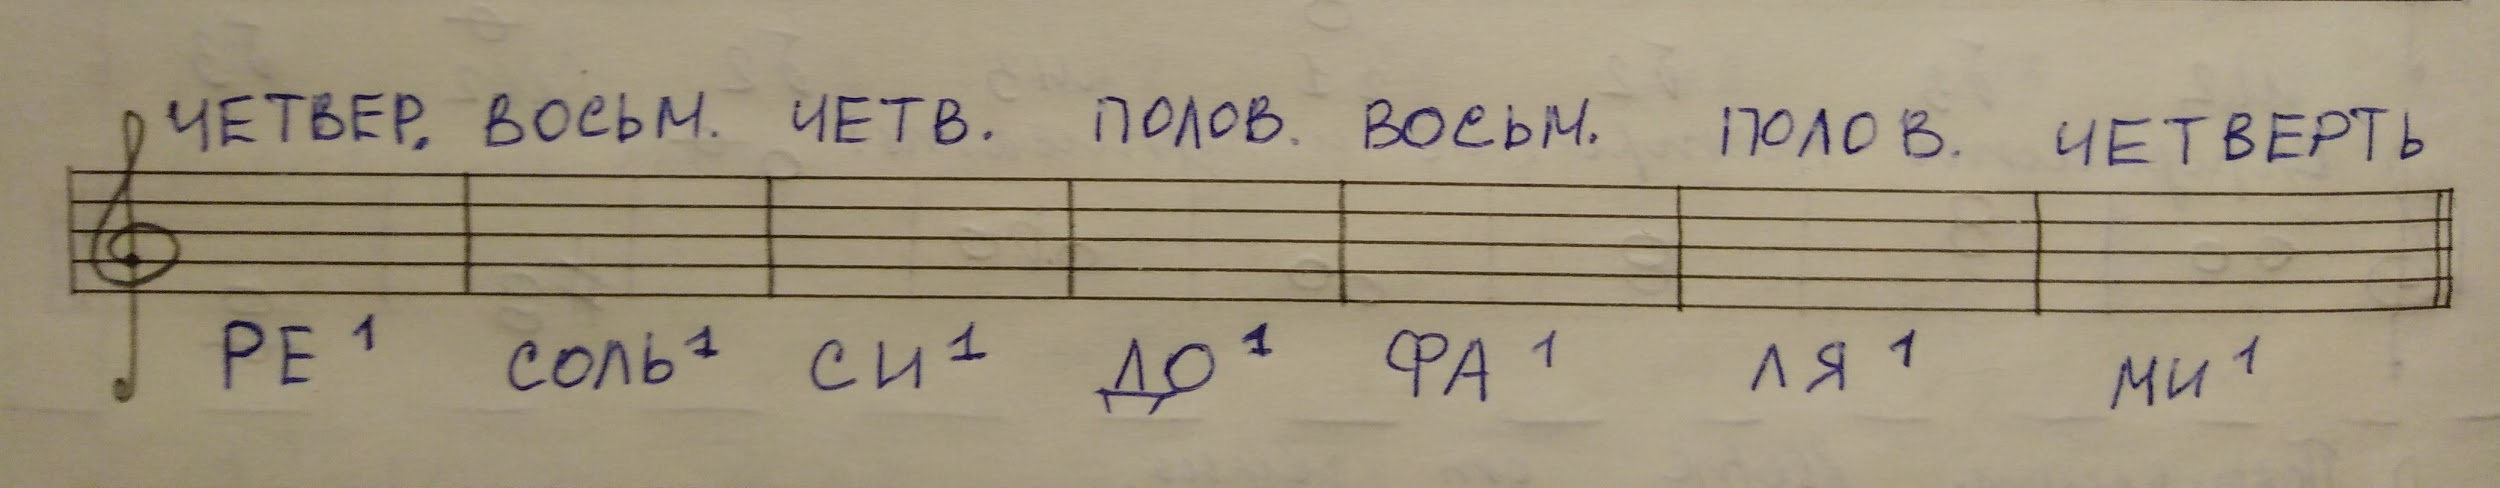 ЧЕТВЕР. ВОСЬМ. ЧЕТВ. ПОЛОВ. ВОСЬМ. ПОЛОВ. ЧЕТВЕРТЬ
РЕ¹ СОЛЬ¹ СИ¹ ДО¹ ФА¹ ЛЯ¹ МИ¹